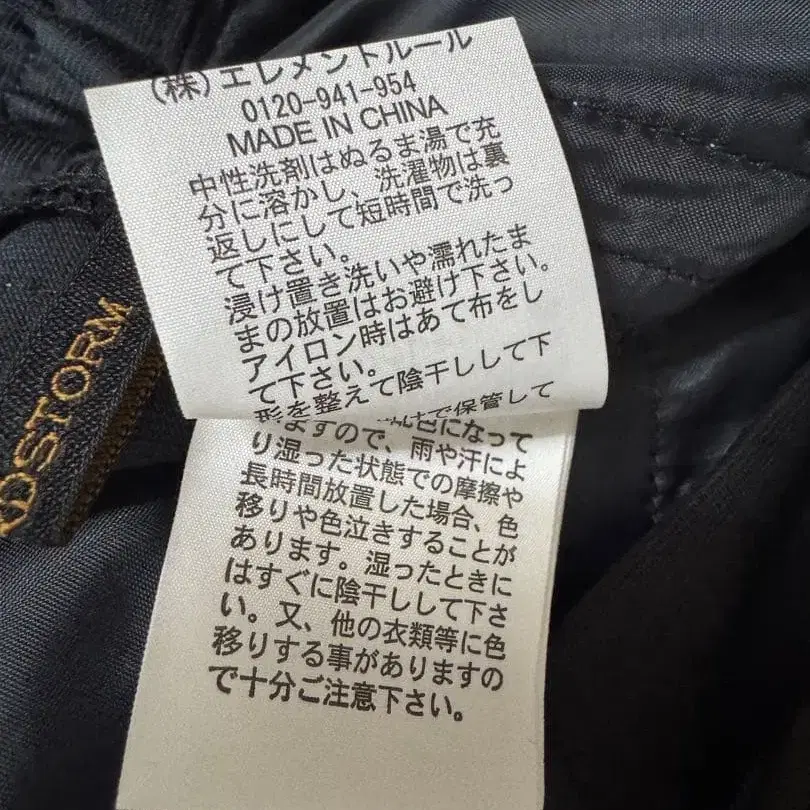 (株)エレメントルール
0120-941-954
MADE IN CHINA
中性洗剤はぬるま湯で充
分に溶かし、洗濯物は裏
返しにして短時間で洗っ
て下さい。
浸け置き洗いや濡れたま
まの放置はお避け下さい。
アイロン時はあて布をし
て下さい。
形を整えて陰干しして下
で保管して
ますので、雨や汗によ
り湿った状態での摩擦や
長時間放置した場合、色
移りや色泣きすることが
あります。湿ったときに
はすぐに陰干しして下さ
い。又、他の衣類等に色
移りする事がありますの
で十分ご注意下さい。
DSTORM